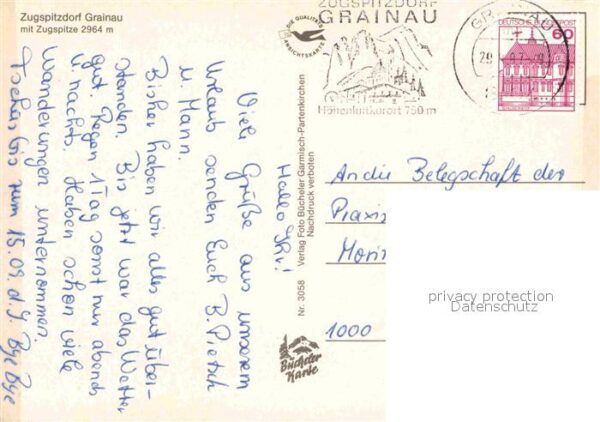 Zugspitzdorf Grainau
mit Zugspitze 2964 m
Hallo Ihr!
Viele Grüße aus unserem
Urlaub senden Euch B. Pietsch
u. Mann.
Bisher haben wir alles gut über-
standen. Bis jetzt war das Wetter
gut. Regen 1 Tag sonst nur abends
u. nachts. Haben schon viele
Wanderungen unternommen.
Tschüs bis zum 15.09. Bye Bye
DIE QUALITÄTS
ANSICHTSKARTE
Nr. 3058
Verlag Foto Bücheler Garmisch-Partenkirchen
Nachdruck verboten
Bücheler
Karte
ZUGSPITZDORF
GRAINAU
Höhenluftkurort 750 m
DEUTSCHE BUNDESPOST
60
An die Belegschaft der
Praxis
Morit
1000
privacy protection
Datenschutz